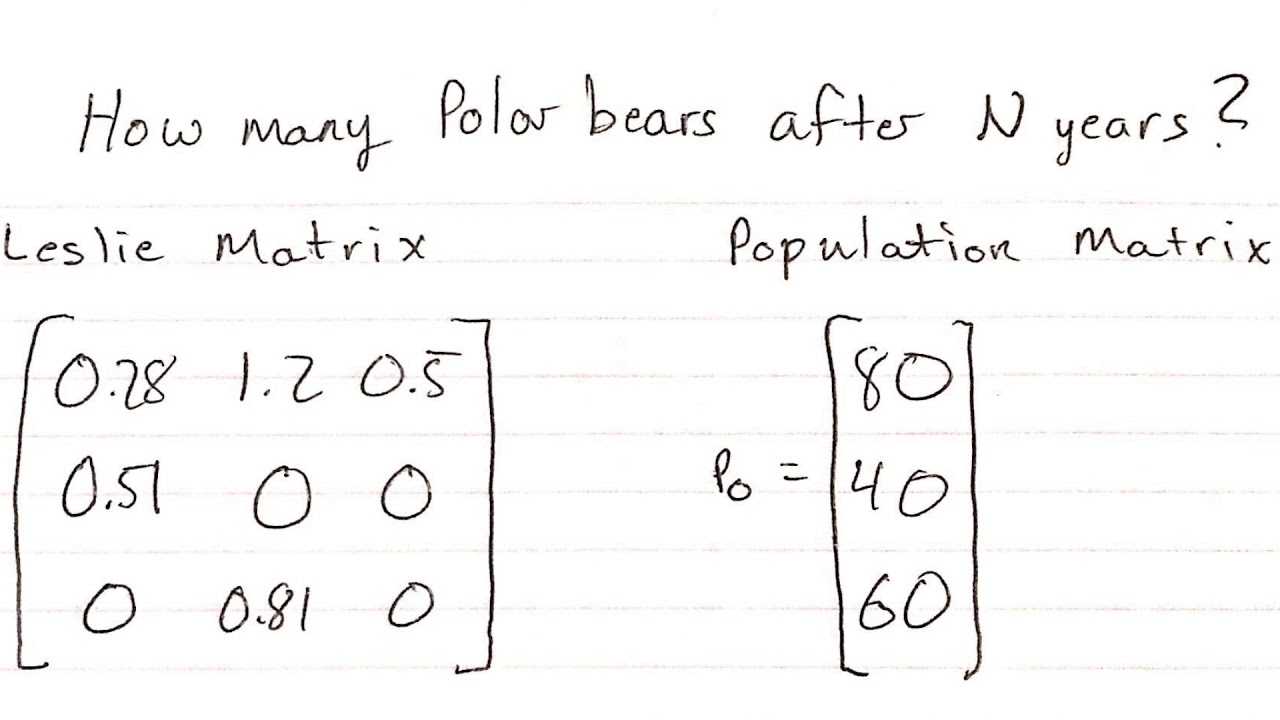 How many Polar bears after N years?
Leslie Matrix Population Matrix
0.28 1.2 0.5 80
0.51 0 0 P0 = 40
0 0.81 0 60